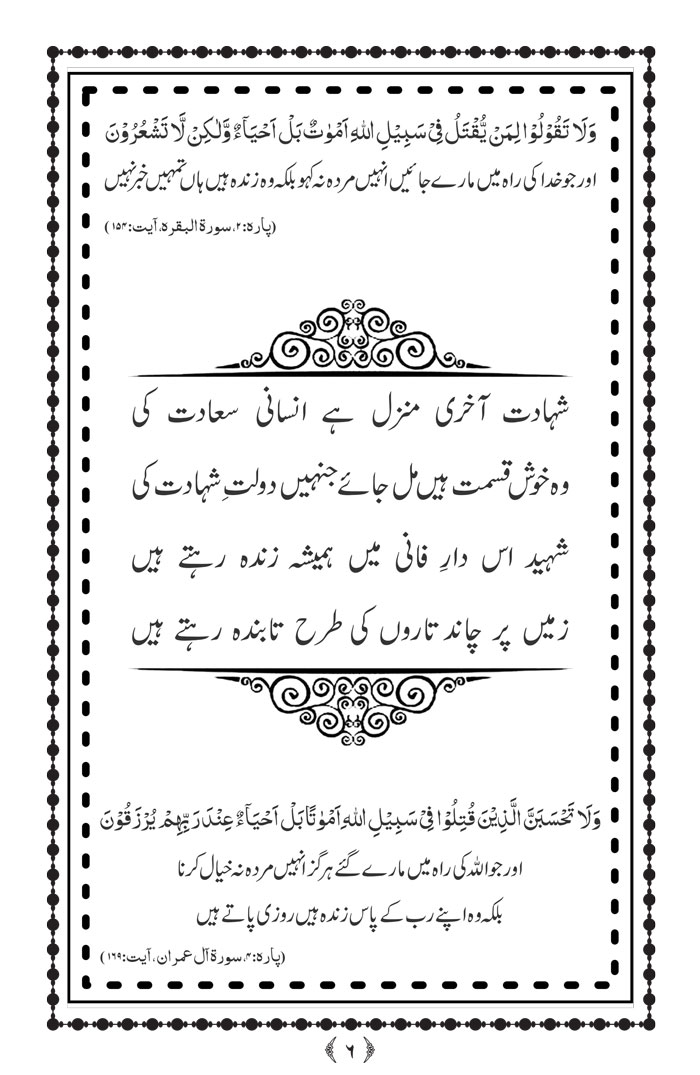 وَلَا تَقُوْلُوْا لِمَنْ يُّقْتَلُ فِيْ سَبِيْلِ اللهِ اَمْوٰتٌ بَلْ اَحْيَآءٌ وَّلٰكِنْ لَّا تَشْعُرُوْنَ
اور جو خدا کی راہ میں مارے جائیں انہیں مردہ نہ کہو بلکہ وہ زندہ ہیں ہاں تمہیں خبر نہیں
(پارہ:۲، سورۃ البقرہ، آیت:۱۵۴)
شہادت آخری منزل ہے انسانی سعادت کی
وہ خوش قسمت ہیں مل جائے جنہیں دولتِ شہادت کی
شہید اس دارِ فانی میں ہمیشہ زندہ رہتے ہیں
زمیں پر چاند تاروں کی طرح تابندہ رہتے ہیں
وَلَا تَحْسَبَنَّ الَّذِيْنَ قُتِلُوْا فِيْ سَبِيْلِ اللهِ اَمْوٰتًا بَلْ اَحْيَآءٌ عِنْدَ رَبِّهِمْ يُرْزَقُوْنَ
اور جو اللہ کی راہ میں مارے گئے ہرگز انہیں مردہ نہ خیال کرنا
بلکہ وہ اپنے رب کے پاس زندہ ہیں روزی پاتے ہیں
(پارہ:۴، سورۃ آل عمران، آیت:۱۶۹)
۶